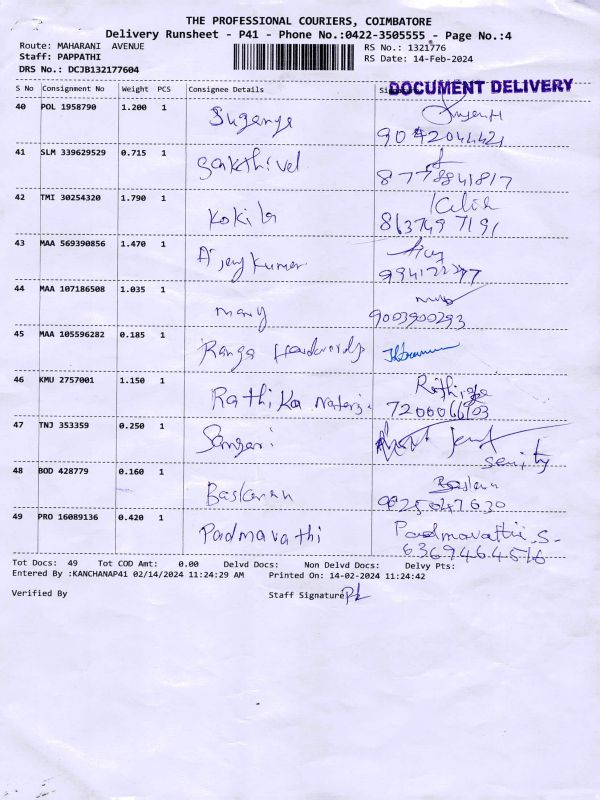 THE PROFESSIONAL COURIERS, COIMBATORE
Delivery Runsheet - P41 - Phone No.:0422-3505555 - Page No.:4
Route: MAHARANI AVENUE RS No.: 1321776
Staff: PAPPATHI RS Date: 14-Feb-2024
DRS No.: DCJB132177604
DOCUMENT DELIVERY
S No Consignment No Weight PCS Consignee Details
40 POL 1958790 1.200 1 Suganya
41 SLM 339629529 0.715 1 Sakthivel
8778841817
42 TMI 30254320 1.790 1 Kokila
8637497191
43 MAA 569390856 1.470 1 Kumar
44 MAA 107186508 1.035 1 mary
9003900293
45 MAA 105596282 0.185 1 Ranga
46 KMU 2757001 1.150 1 Rathika
7200066703
47 TNJ 353359 0.250 1
48 BOD 428779 0.160 1 Baskaran
9025047630
49 PRO 16089136 0.420 1 Padmavathi Padmavathi S.
6369464516
Tot Docs: 49 Tot COD Amt: 0.00 Delvd Docs: Non Delvd Docs: Delvy Pts:
Entered By :KANCHANAP41 02/14/2024 11:24:29 AM Printed On: 14-02-2024 11:24:42
Verified By Staff Signature